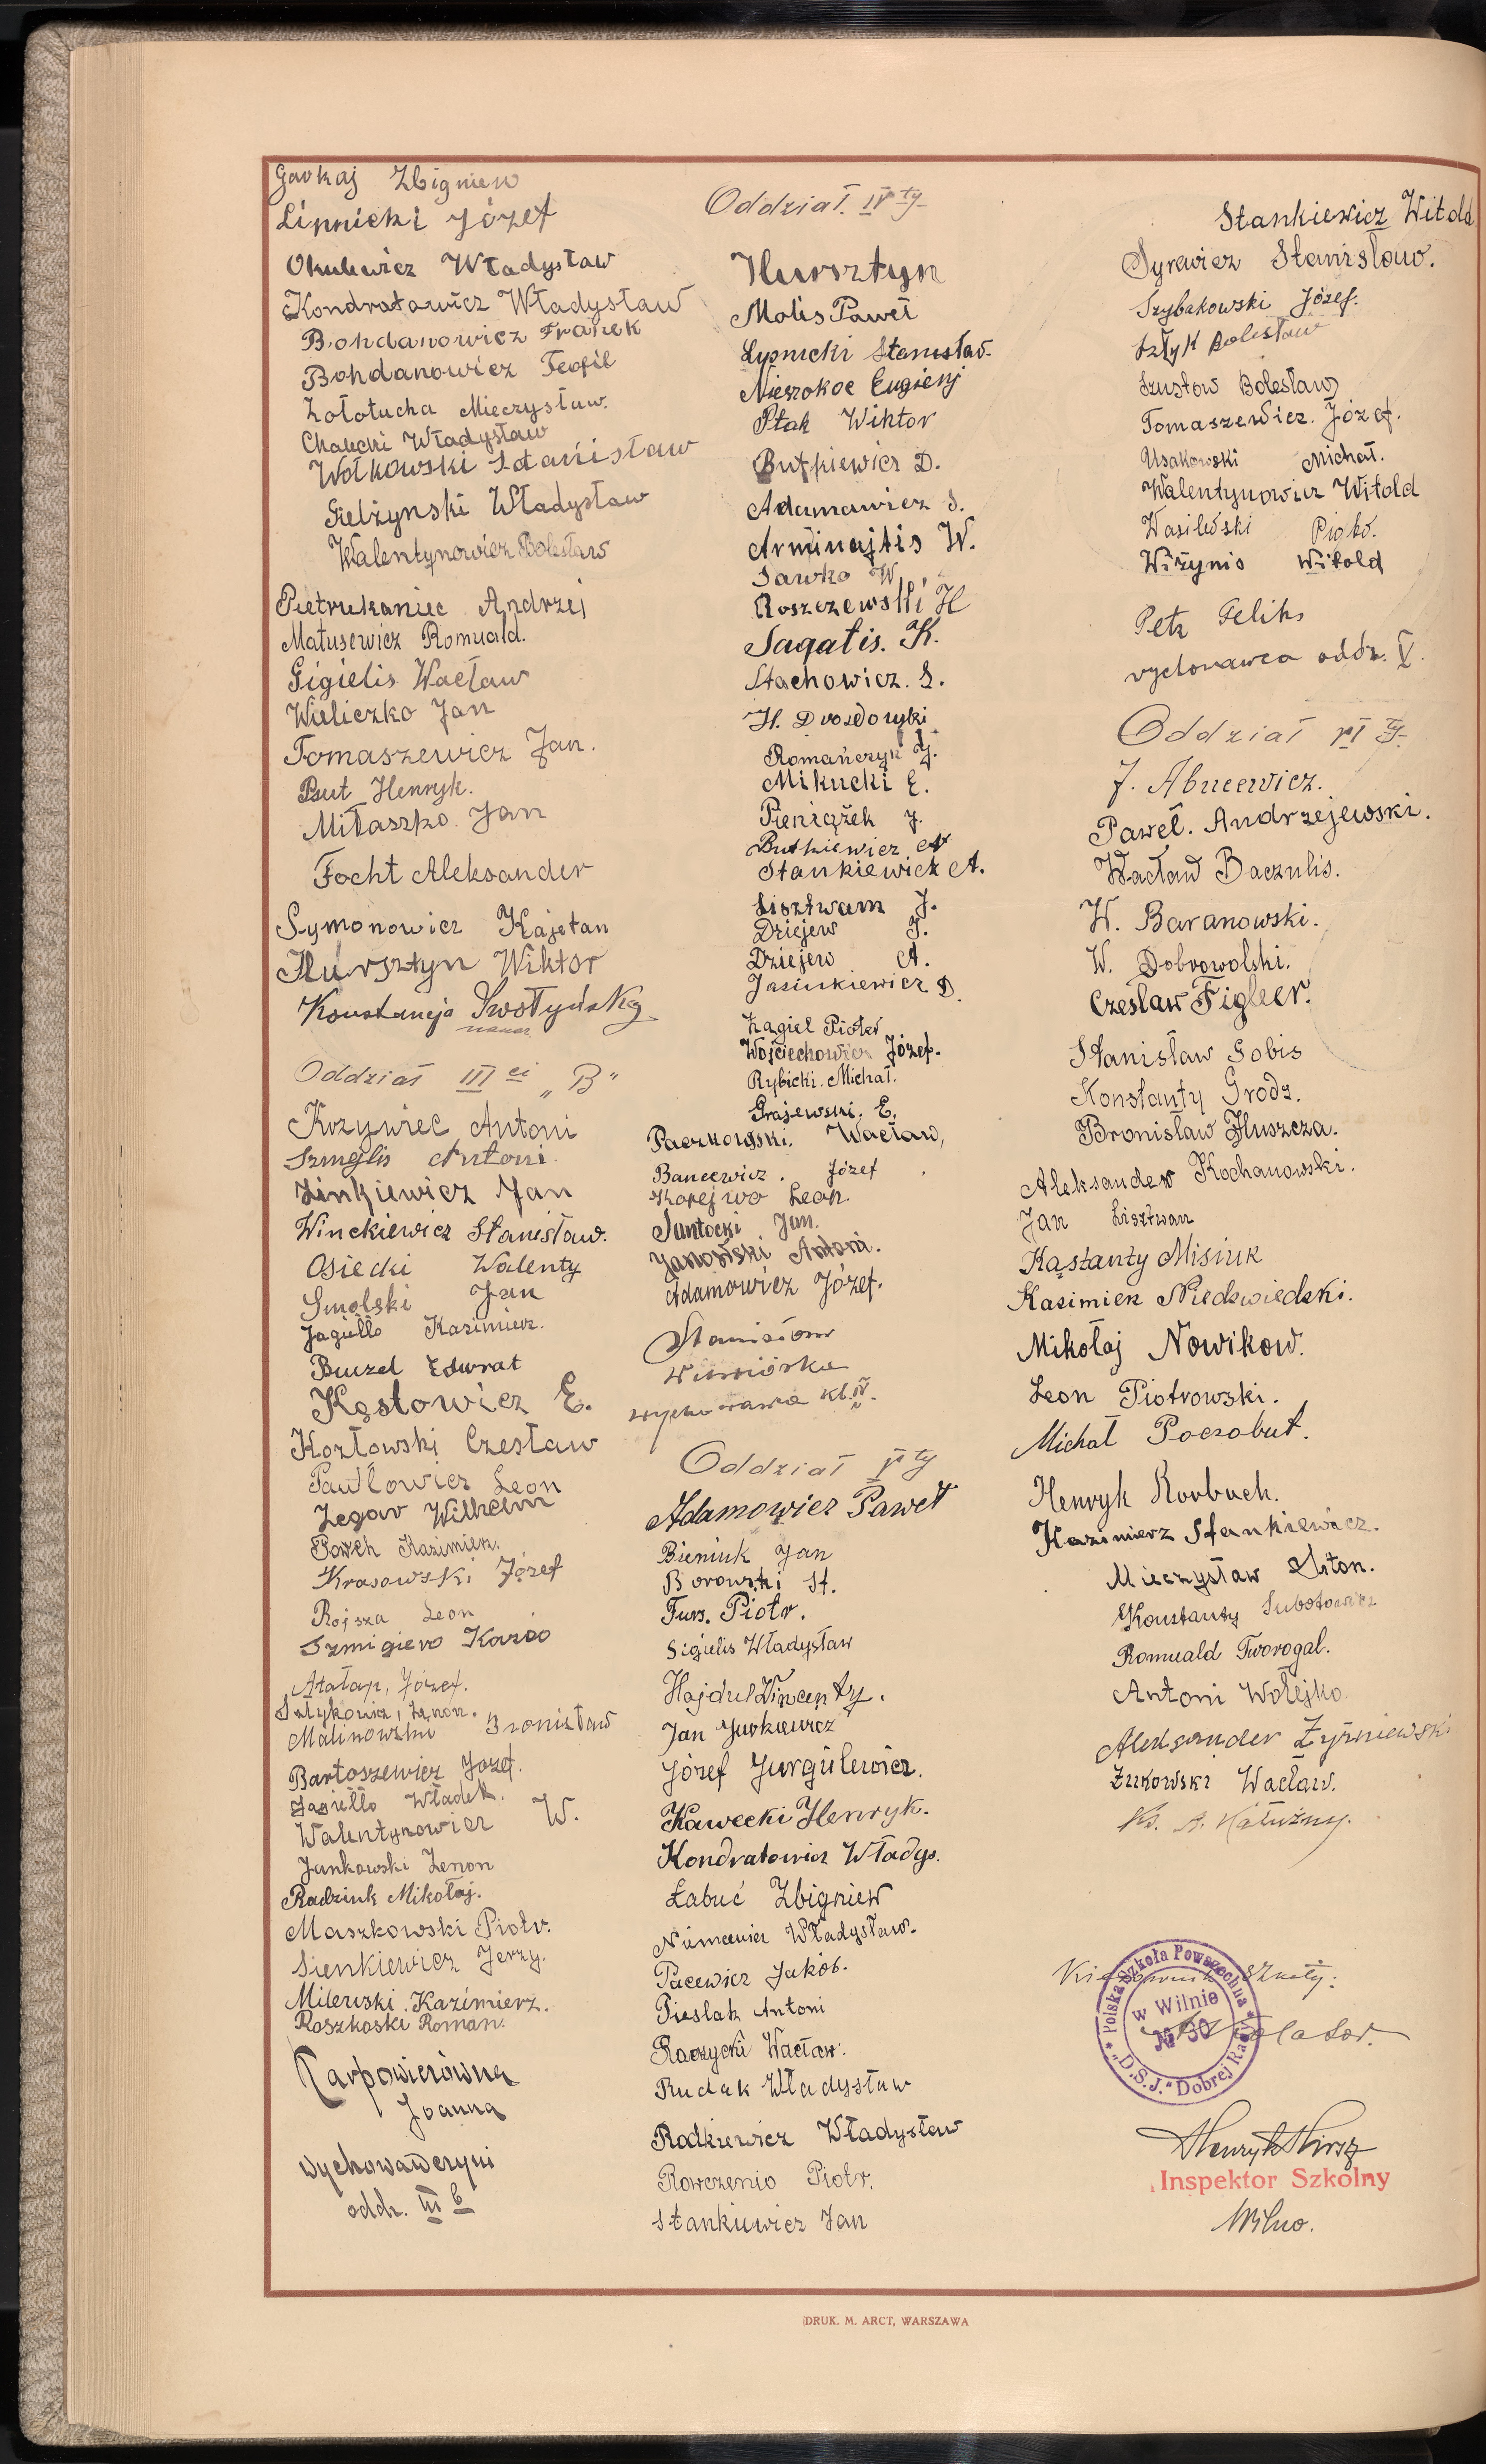 Gavkaj Zbigniew
Lipnicki Józef
Okulewicz Władysław
Kondratowicz Władysław
Bohdanowicz Franek
Bohdanowicz Teofil
Zołotucha Mieczysław.
Chalecki Władysław
Wołkowski Stanisław
Giełżynski Władysław
Walentynowicz Bolesław
Pietrukaniec Andrzej
Matusewicz Romuald.
Gigielis Wacław
Wieliczko Jan
Tomaszewicz Jan.
But Henryk.
Mitaszko Jan
Focht Aleksander
Symonowicz Kajetan
Hursztyn Wiktor
Konstancja
Oddział III ci „B"
Krzywiec Antoni
Szmglis Antoni
Zinkiewicz Jan
Winckiewicz Stanisław.
Osiecki Walenty
Smolski Jan
Jagiełło Kazimierz.
Buzel Edwrat
Kęstowicz E.
Kozłowski Czesław
Pawłowicz Leon
Zegar Wilhelm
Kazimierz.
Krasowski Józef
Rojsza Leon
Szmigiero Kazio
Atałap, Józef.
Satykowicz, Zenon.
Malinowski Bronisław
Bartoszewicz Józef.
Jagiełło Władek.
Walentynowicz W.
Jankowski Zenon
Radziuk Mikołaj.
Maszkowski Piotr.
Sienkiewicz Jerzy.
Milewski Kazimierz.
Roszkoski Roman.
Karpowiczówna
Joanna
wychowawczyni
oddz. III b
Oddział. IV ty
Hursztyn
Molis Paweł
Lypnicki Stanisław.
Nieszokoc Eugienj
Ptak Wiktor
Butkiewicz D.
Adamawicz S.
Arminajtis W.
Sawko W
Roszczewski H
Sagatis. K.
Stachowicz. S.
H.
Romańczyk J.
Mikucki E.
Pieniążek J.
Butkiewicz A
Stankiewicz A.
Lisztwam J.
Dziejew J.
Dziejew A.
Jasiukiewicz D.
Żagiel Piotr
Wojciechowicz Józef.
Rybicki. Michał.
Grajewski. E.
Paczkowski. Wacław,
Bancewicz. Józef
Korejwo Leon
Santocki Jan.
Janowski Antoni.
Adamowicz Józef.
Stanisław
Wiewiórka
wychowawca kl. IV.
Oddział V ty
Adamowicz Paweł
Bieniuk Jan
Borowski St.
Furs. Piotr.
Sigielis Władysław
Hajdul Wincenty.
Jan Jurkiewicz
Józef Jurgulewicz.
Kawecki Henryk.
Kondratowicz Władys.
Łabuć Zbigniew
Niemcewicz Władysław.
Pacewicz Jakób.
Pieslak Antoni
Raczycki Wacław.
Rudak Władysław
Rodkiewicz Władysław
Rowczenio Piotr.
Stankiewicz Jan
Stankiewicz Witold
Syrewicz Stanisław.
Szybakowski Józef.
Sztyk Bolesław
Szustow Bolesław
Tomaszewicz. Józef.
Usakowski Michał.
Walentynowicz Witold
Wasilewski Piotr.
Wiżynis Witold
Petz Feliks
wychowawca oddz. V.
Oddział VI ty
J. Abucewicz.
Paweł. Andrzejewski.
Wacław Baczulis.
W. Baranowski.
W. Dobrowolski.
Czesław Figleer.
Stanisław Gobis
Konstanty Grodz.
Bronisław Huszcza.
Aleksander Kochanowski.
Jan Lisztwan
Kąstanty Misiuk
Kazimierz Niedzwiedzki.
Mikołaj Nowikow.
Leon Piotrowski.
Michał Poczobut.
Henryk Rorbuch.
Kazimierz Stankiewicz.
Mieczysław
Konstanty Subotowicz
Romuald Tworogal.
Antoni Wołejko
Aleksander Żyżniewski
Żukowski Wacław.
Ks. A. Kałużny.
Kierownik szkoły:
Polska Szkoła Powszechna
w Wilnie
№ 30
"D.S.J." Dobrej Rady
Henryk Hirsz
Inspektor Szkolny
Wilno.
DRUK. M. ARCT, WARSZAWA